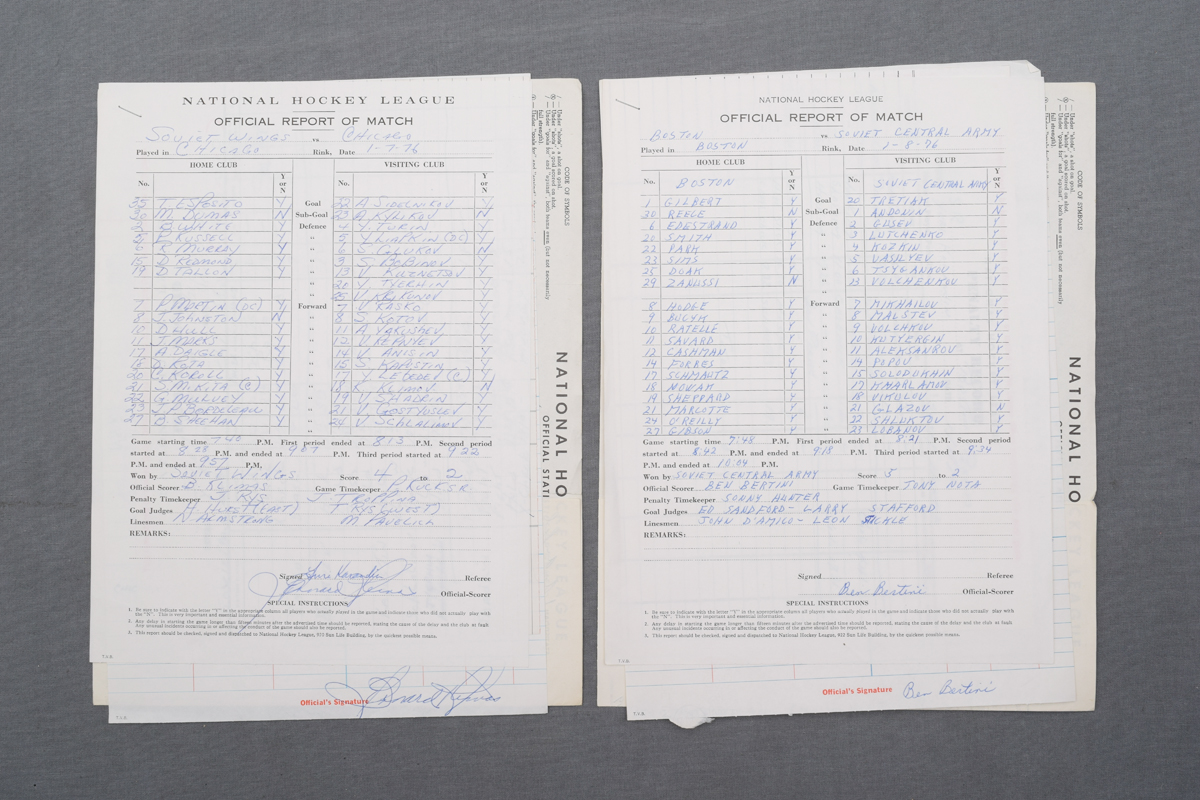 NATIONAL HOCKEY LEAGUE
OFFICIAL REPORT OF MATCH
SOVIET WINGS vs CHICAGO
Played in CHICAGO Rink, Date 1-7-76
HOME CLUB VISITING CLUB
No. Y or N No. Y or N
35 T. ESPOSITO Y Goal A SIDELNIKOV Y
30 M. DUMAS N Sub-Goal A KULIKOV N
2 B. WHITE Y Defence
5 P. RUSSELL Y " 5 Y LIAPKIN (DC) Y
K MULVERN
15 D REDMOND Y "
19 D TALLON Y " 13 V KUZNETSOV Y
7 P. MARTIN (OC) Y Forward
8 J. JOHNSTON N " 8 S KOTOV Y
10 D HULL Y " 11 A YAKUSHEV Y
11 J. MARKS Y " 12 V REPNYEV Y
17 A DAIGLE Y " 14 V. ANISIN Y
C KOTA Y " S KAPUSTIN Y
20 C KOROLL Y " 17 Y LEBEDEV (C) Y
21 S. MIKITA (C) Y " 18 KLIMOV N
22 G MULVEY Y " 19 V SHADRIN Y
23 J P BORDELEAU Y " 21 V
27 B. SHEEHAN Y " 24 V
Game starting time 7 40 P.M. First period ended at 8 13 P.M. Second period
started at 8 28 P.M. and ended at 9 07 P.M. Third period started at 9 22
P.M. and ended at 9 57 P.M.
Won by SOVIET WINGS Score 4 to 2
Official Scorer Game Timekeeper
Penalty Timekeeper J. KYS
Goal Judges A HURST (EAST) T KYS (WEST)
Linesmen N ARMSTRONG M. PAVELICH
REMARKS:
Signed Referee
Official-Scorer
SPECIAL INSTRUCTIONS
1. Be sure to indicate with the letter "Y" in the appropriate column all players who actually played in the game and indicate those who did not actually play with
the "N". This is very important and essential information.
2. Any delay in starting the game longer than fifteen minutes after the advertised time should be reported, stating the cause of the delay and the club at fault.
Any unusual incidents occurring in or affecting the conduct of the game should also be reported.
3. This report should be checked, signed and dispatched to National Hockey League, 922 Sun Life Building, by the quickest possible means.
T.V.B.
Official's Signature
T.V.B.
CODE OF SYMBOLS
NATIONAL HO
OFFICIAL STATI
NATIONAL HOCKEY LEAGUE
OFFICIAL REPORT OF MATCH
BOSTON vs SOVIET CENTRAL ARMY
Played in BOSTON Rink, Date 1-8-76
HOME CLUB VISITING CLUB
No. BOSTON Y or N No. SOVIET CENTRAL ARMY Y or N
1 GILBERT Y Goal 20 TRETIAK Y
30 REECE N Sub-Goal 1 N
6 EDESTRAND Y Defence 2 GUSEV Y
20 SMITH Y " 3 LUTCHENKO Y
22 PARK Y " 4 KOZKIN Y
23 SIMS Y " 5 VASILYEV Y
25 DOAK Y " 6 TSYGANKOV Y
29 ZANUSSI N " 13 VOLCHENKOV Y
8 HODGE Y Forward 7 MIKHAILOV Y
9 BUCYK Y " 8 MALSTEV Y
10 RATELLE Y " 9 VOLCHKOV Y
11 SAVARD Y " 10 KUTYERGIN Y
12 CASHMAN Y " 11 ALEKSANROV Y
14 FORBES Y " 14 POPOV Y
17 SCHMAUTZ Y " 15 SOLODUKHIN Y
18 NOWAK Y " 17 KHARLAMOV Y
19 SHEPPARD Y " 18 VIKULOV Y
21 MARCOTTE Y " 21 GLAZOV N
24 O'REILLY Y " 22 SHLUKTOV Y
27 GIBSON Y " 23 LOBANOV Y
Game starting time 7:48 P.M. First period ended at 8:21 P.M. Second period
started at 8:42 P.M. and ended at 9:18 P.M. Third period started at 9:34
P.M. and ended at 10:04 P.M.
Won by SOVIET CENTRAL ARMY Score 5 to 2
Official Scorer BEN BERTINI Game Timekeeper TONY NOTA
Penalty Timekeeper SONNY HUNTER
Goal Judges ED SANDFORD - GARRY STAFFORD
Linesmen JOHN D'AMICO - LEON SICKLE
REMARKS:
Signed Referee
Ben Bertini Official-Scorer
SPECIAL INSTRUCTIONS
1. Be sure to indicate with the letter "Y" in the appropriate column all players who actually played in the game and indicate those who did not actually play with
the "N". This is very important and essential information.
2. Any delay in starting the game longer than fifteen minutes after the advertised time should be reported, stating the cause of the delay and the club at fault.
Any unusual incidents occurring in or affecting the conduct of the game should also be reported.
3. This report should be checked, signed and dispatched to National Hockey League, 922 Sun Life Building, by the quickest possible means.
T.V.B.
Official's Signature Ben Bertini
T.V.B.
CODE OF SYMBOLS
NATIONAL HO